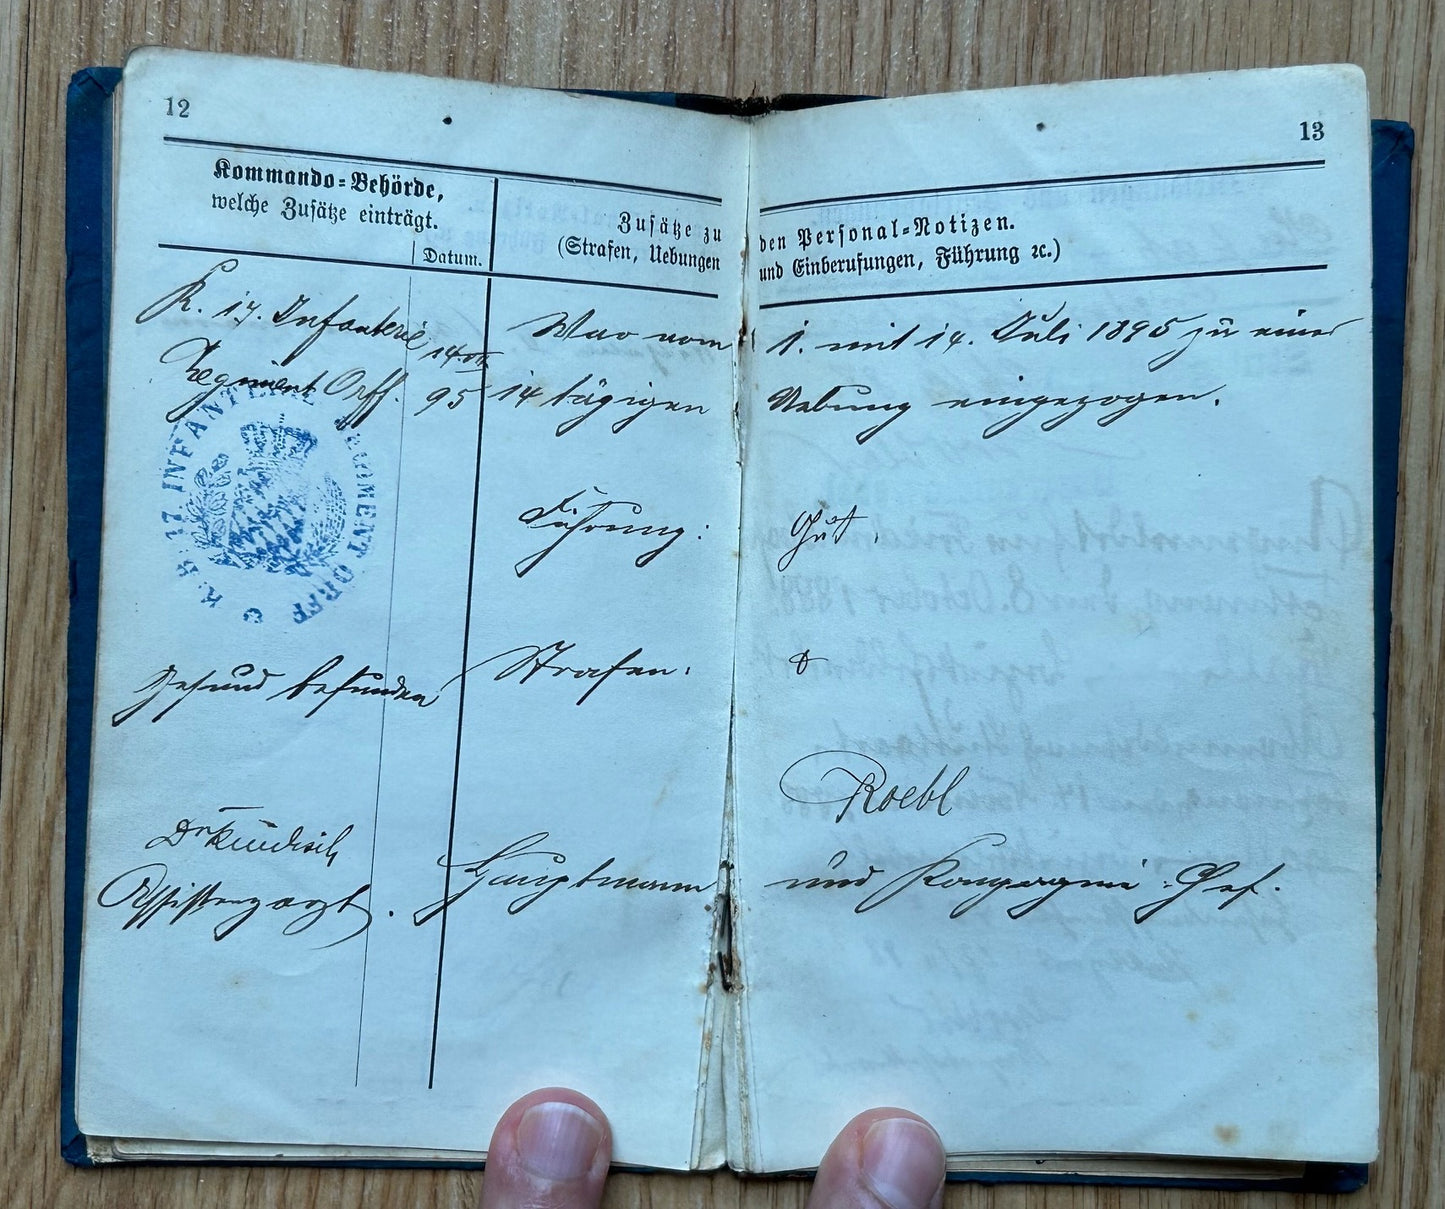 12
13
Kommando-Behörde,
welche Zusätze einträgt.
Datum.
Zusätze zu den Personal-Notizen.
(Strafen, Uebungen und Einberufungen, Führung ꝛc.)
K. 17. Infanterie
Regiment Orff.
14.
95
War vom 1. mit 14. Juli 1895 zu einer
14 tägigen Uebung eingezogen.
K. B. 17. INFANTERIE REGIMENT ORFF
Führung: Gut.
Gesund befunden
Strafen:
Roebl
Dr
Assistenzarzt.
Hauptmann und Kompagnie-Chef.